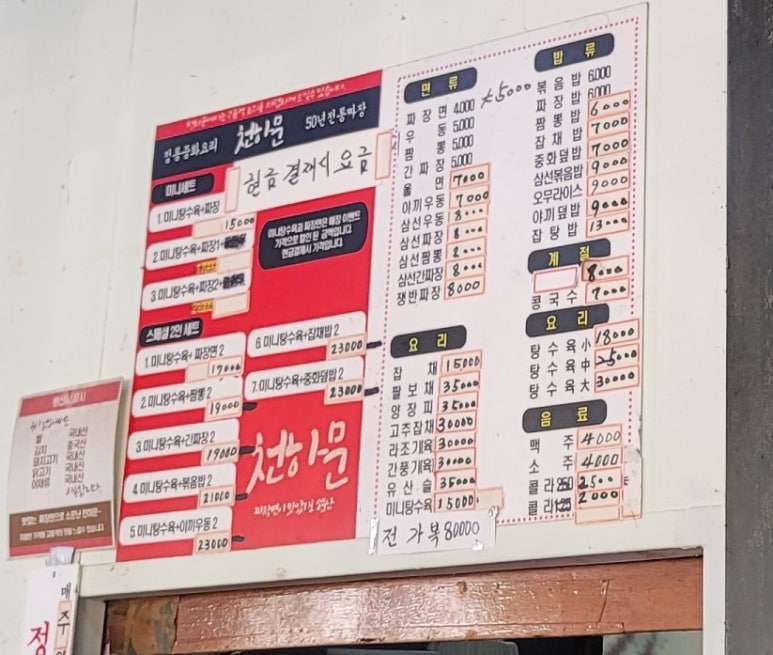 정통중화요리 천하문 50년전통짜장
현금결재시 요금
미니세트
1. 미니탕수육+짜장
15000
2. 미니탕수육+짜장1+
3. 미니탕수육+짜장2+
미니탕수육과 짜장면은 매장 이벤트
가격으로 할인 된 금액입니다.
현금결제시 가격입니다.
스페셜 2인 세트
1. 미니탕수육+ 짜장면2
17000
2. 미니탕수육+짬뽕2
19000
3. 미니탕수육+간짜장2
19000
4. 미니탕수육+볶음밥2
21000
5. 미니탕수육+야끼우동2
23000
6. 미니탕수육+잡채밥2
23000
7. 미니탕수육+중화덮밥2
23000
천하문
면 류
짜장면 4,000 5000
우동 5,000
짬뽕 5,000
간짜장 5,000
울면 7000
야끼우동 7000
삼선우동 8000
삼선짜장 8000
삼선짬뽕 8000
삼선간짜장 8000
쟁반짜장 8000
요 리
잡채 15000
팔보채 35000
양장피 35000
고추잡채 30000
라조기육 30000
간풍기육 30000
유산슬 35000
미니탕수육 15000
전가복 80000
밥 류
볶음밥 6,000
짜장밥 6,000
짬뽕밥 6000
잡채밥 7000
중화덮밥 7000
삼선볶음밥 9000
오무라이스 9000
야끼덮밥 9000
잡탕밥 13000
계 절
8000
콩국수 7000
요 리
탕수육小 18000
탕수육中 25000
탕수육大 30000
음 료
맥주 4000
소주 4000
콜라 2500
콜라1.25 2000
원산지표시
쌀 국내산
김치 중국산
돼지고기 국내산
닭고기 국내산
맥주
정